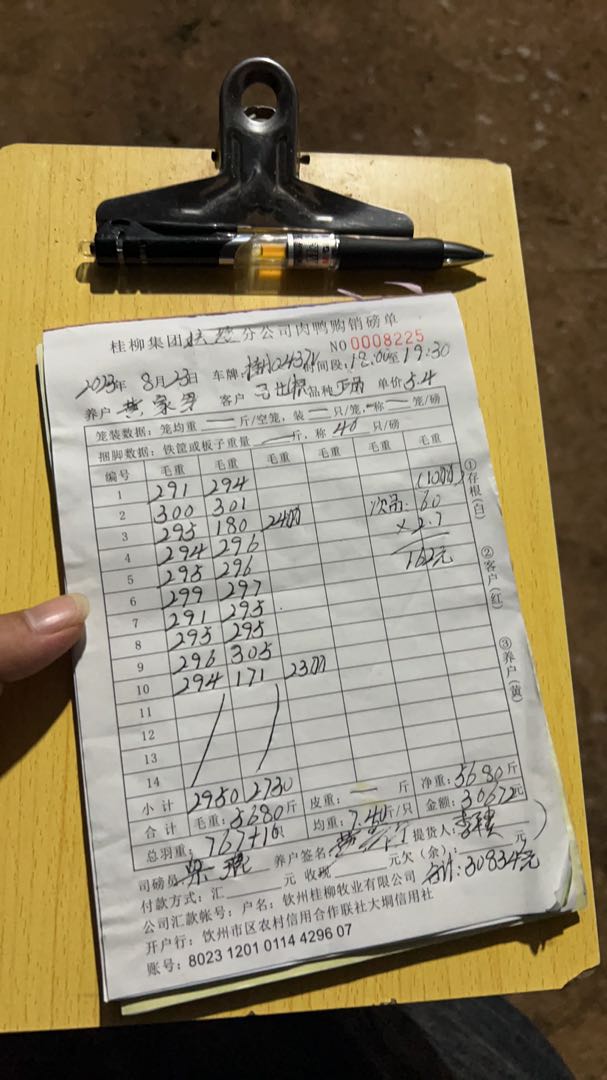 桂柳集团 分公司肉鸭购销磅单
NO 0008225
2023年 8月23日 车牌: 时间段:18:00至19:30
养户 黄家 客户 品种 正品 单价 5.4
笼装数据: 笼均重 — 斤/空笼, 装 — 只/笼, 称 — 笼/磅
捆脚数据: 铁筐或板子重量 — 斤, 称 40 只/磅
编号 毛重 毛重 毛重 毛重 毛重 毛重
1 291 294 (1000)
2 300 301 次品: 60
3 295 180 2400 × 2.7
4 294 296 162元
5 295 296
6 299 297
7 291 295
8 295 295
9 296 305
10 294 171 2300
11
12
13
14
小计 2950 2730 皮重: — 斤 净重: 5680斤
合计 毛重: 5680斤 均重: 7.40斤/只 金额: 30672元
总羽重: 767+1只
司磅员 养户签名: 提货人:
付款方式: 汇 元 收现 元欠(余): 元
公司汇款帐号: 户名: 钦州桂柳牧业有限公司 合计: 30834元
开户行: 钦州市区农村信用合作联社大垌信用社
账号: 8023 1201 0114 4296 07
①存根(白)
②客户(红)
③养户(黄)